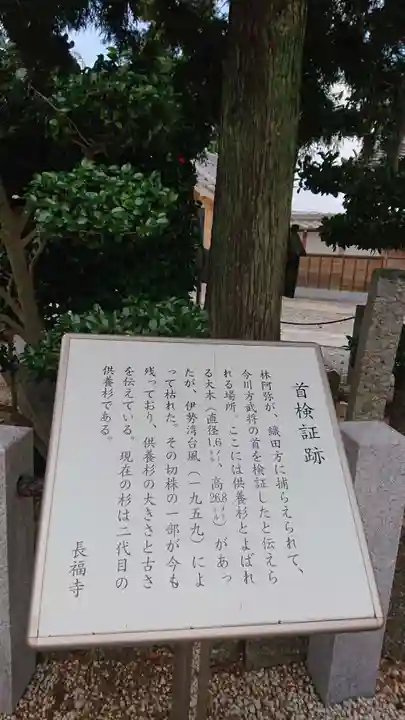 首検証跡
林阿弥が、織田方に捕らえられて、
今川方武将の首を検証したと伝えら
れる場所。ここには供養杉とよばれ
る大木(直径1.6㍍、高26.8㍍)があっ
たが、伊勢湾台風(一九五九)によ
って枯れた。その切株の一部が今も
残っており、供養杉の大きさと古さ
を伝えている。現在の杉は二代目の
供養杉である。
長福寺